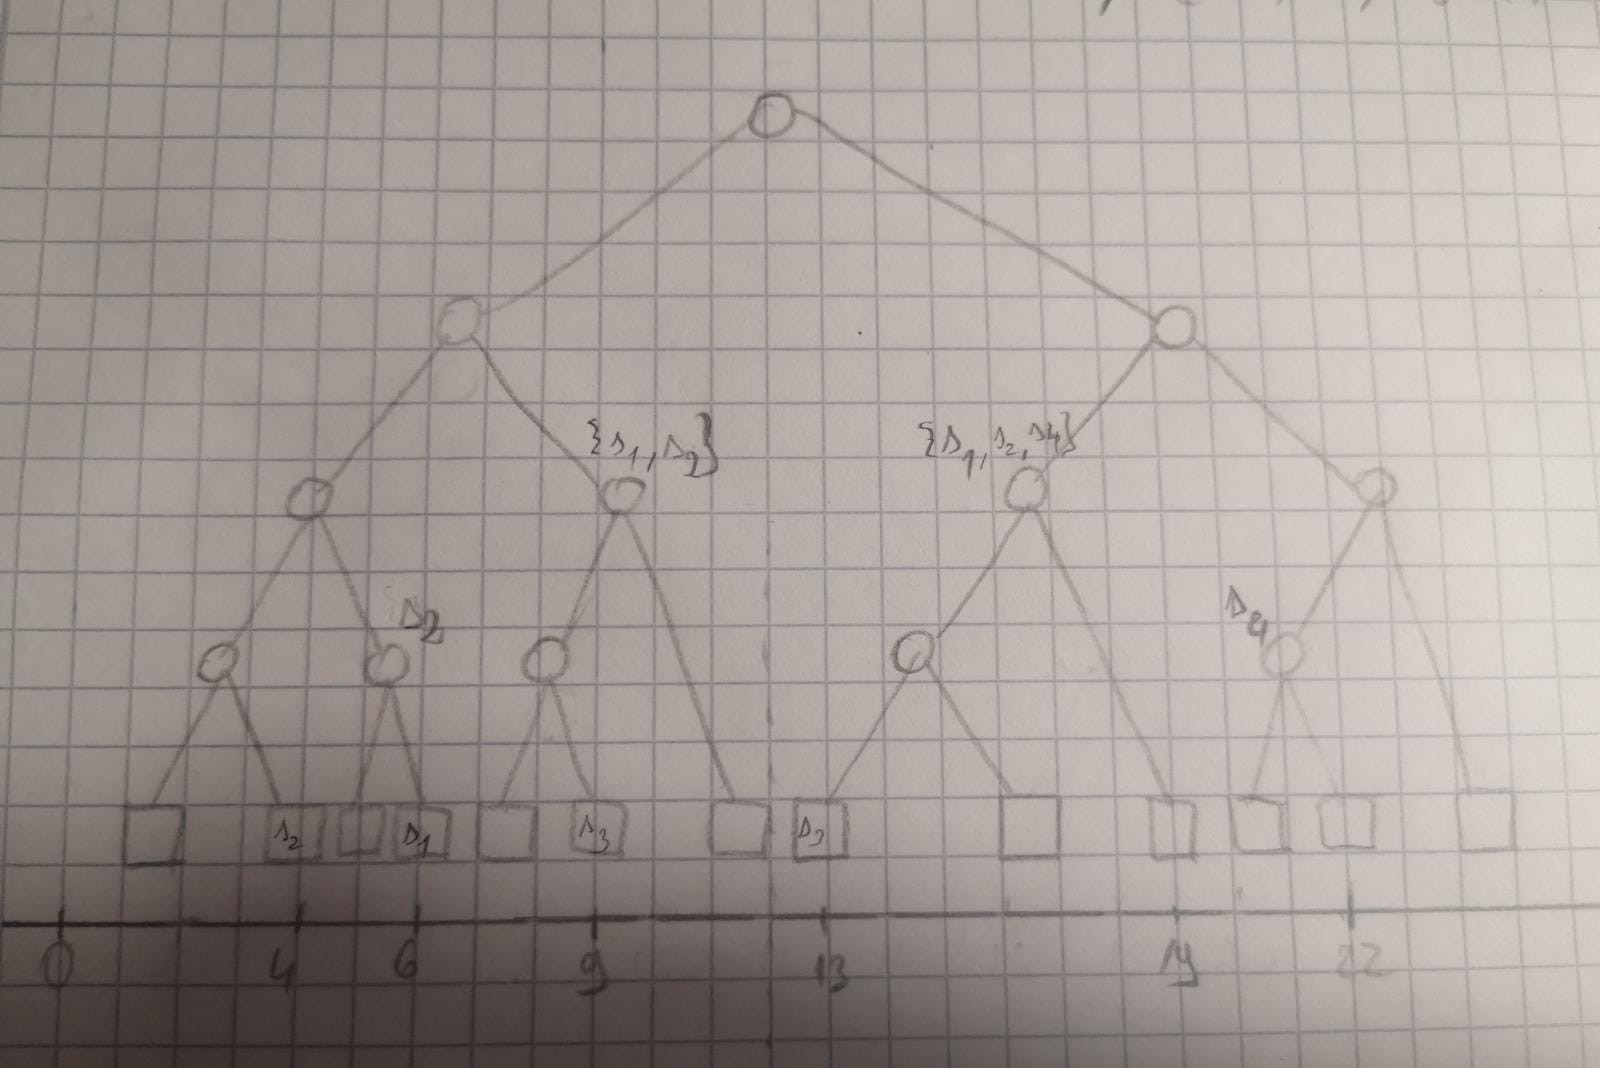 {s1, s2} {s1, s2, s4}
s2 s4
s2 s1 s3 s3
0 4 6 9 13 19 22